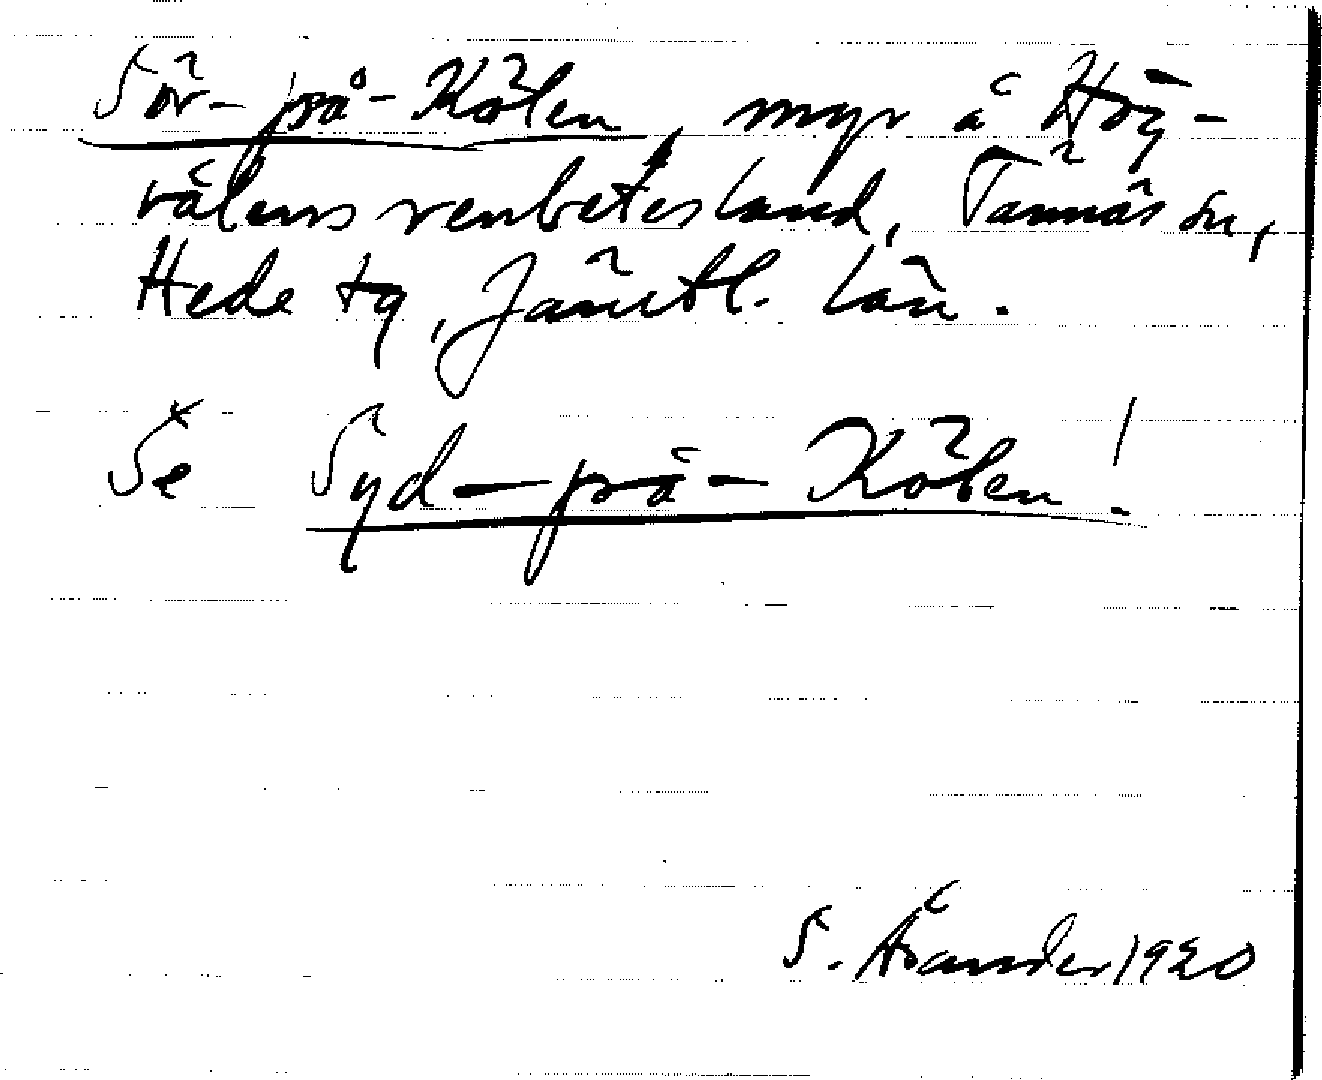 Sör-på-Kölen, myr å Hög-
vålens renbetesland, Tännäs sn,
Hede tg, Jämtl. län.
Se Syd-på-Kölen!
S. 1920